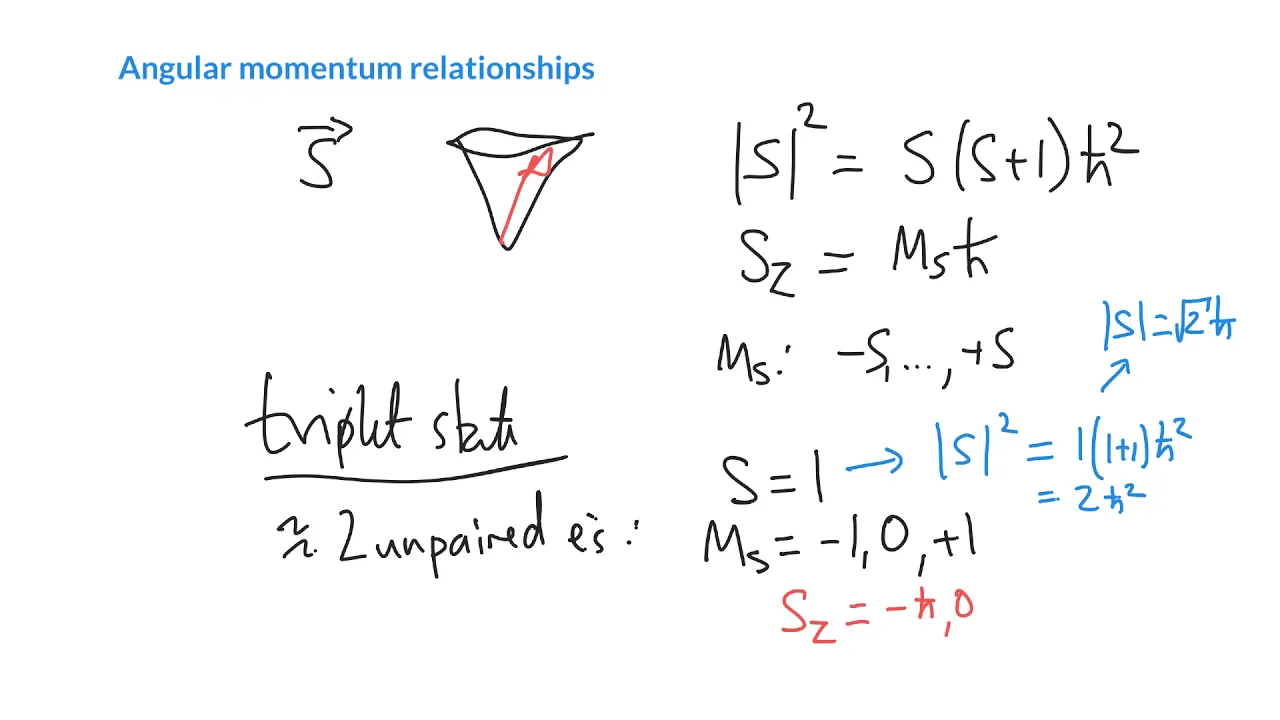 Angular momentum relationships
S⃗
|S|² = S(S+1)ħ²
S_z = M_s ħ
|S| = √2 ħ
M_s: -S, ..., +S
triplet state
S = 1 → |S|² = 1(1+1)ħ²
= 2ħ²
≈ 2 unpaired e⁻s :
M_s = -1, 0, +1
S_z = -ħ, 0